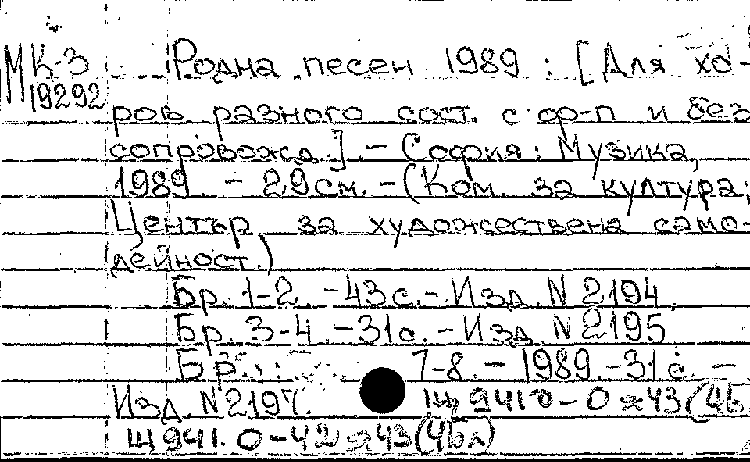 МК-3 Родна песен 1989 : [Для хо-
19292
ров разного сост. с ф-п и без
сопровожд.]. - София : Музика,
1989. - 29 см. - (Ком. за култура;
Център за художествена само-
дейност.)
Бр. 1-2. - 43 с. - Изд. N 2194.
Бр. 3-4. - 31 с. - Изд. N 2195
Бр. 7-8. - 1989. - 31 с. -
Изд. N 2197. Щ 941.0-0 я43(4Б
Щ 941.0-42 я43(4Бл)